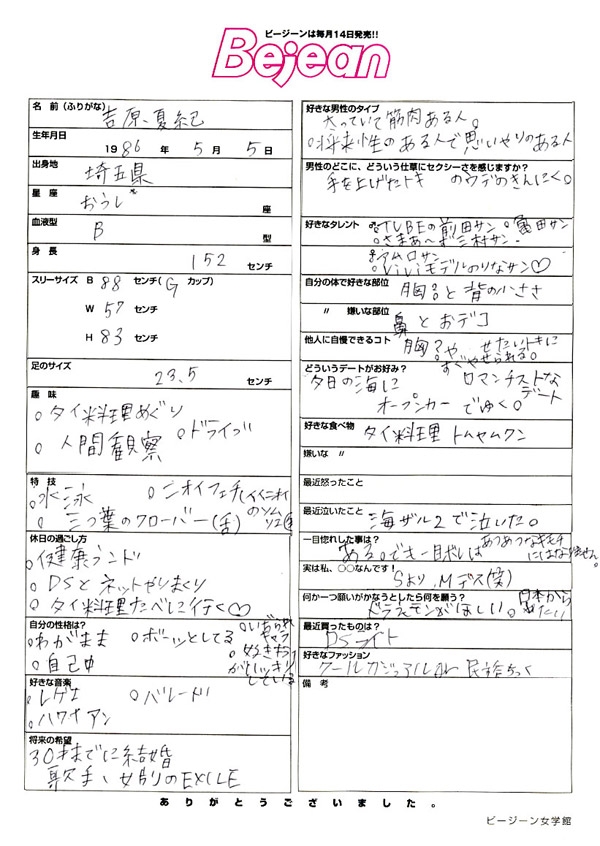 ビージーンは毎月14日発売!!
Bejean
名 前 (ふりがな)
吉原 夏紀
生年月日
1986 年 5 月 5 日
出身地
埼玉県
星 座
おうし 座
血液型
B 型
身 長
152 センチ
スリーサイズ B 88 センチ( G カップ)
W 57 センチ
H 83 センチ
足のサイズ
23.5 センチ
趣 味
○タイ料理めぐり
○人間観察 ○ドライブ
特 技
○水泳 ○ニオイフェチ
○三つ葉のクローバー(舌)
休日の過ごし方
○健康ランド
○DSとネットやりまくり
○タイ料理たべに行く♡
自分の性格は?
○わがまま ○ボーッとしてる
○自己中
好きな音楽
○レゲエ ○バレード
○ハワイアン
将来の希望
30才までに結婚
歌手、女版のEXILE
好きな男性のタイプ
○太っていて筋肉ある人。
○将来性のある人で思いやりのある人
男性のどこに、どういう仕草にセクシーさを感じますか?
手を上げたトキ のウデのきんにく。
好きなタレント
TUBEの前田サン
○さまぁ〜ず三村サン
アムロサン
○ViViモデルのりなサン♡
自分の体で好きな部位
胸?と背の小ささ
〃 嫌いな部位
鼻とおデコ
他人に自慢できるコト
胸?や、せたいトキに
すぐやせられる。
どういうデートがお好み?
夕日の海に ロマンチストな
オープンカーでゆく。 デート
好きな食べ物
タイ料理 トムヤムクン
嫌いな 〃
最近怒ったこと
最近泣いたこと
海ザル2で泣いた。
一目惚れした事は?
ある。でも一目ボレは
あつあつなキモチ
にはなれません。
実は私、○○なんです!
Sより、Mデス(笑)
何か一つ願いがかなうとしたら何を願う?
ドラえモンがほしい。
最近買ったものは?
DSライト
好きなファッション
クールカジュアル
備 考
ありがとうございました。
ビージーン女学館